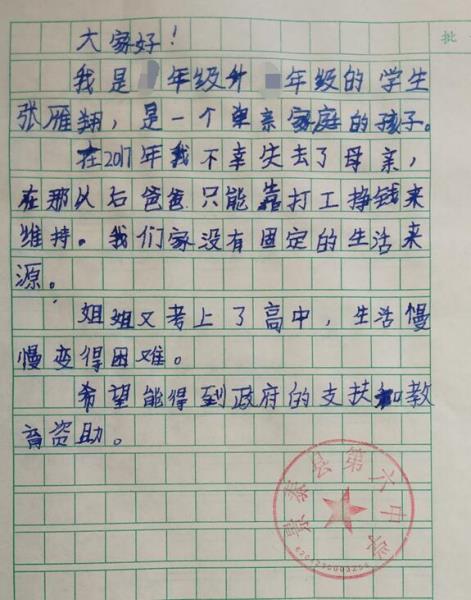 批
大家好！
我是 年级升 年级的学生
张雁翔，是一个单亲家庭的孩子。
在2017年我不幸失去了母亲，
在那从右爸爸只能靠打工挣钱来
维持。我们家没有固定的生活来
源。
姐姐又考上了高中，生活慢
慢变得困难。
希望能得到政府的支扶和教
育资助。
景泰县第六中学